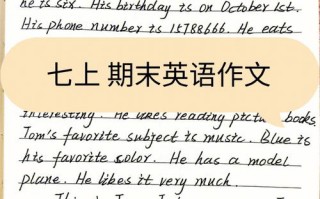 he is six. His birthday is on October 1st.
His phone number is 15788666. He eats
七上 期末英语作文
interesting. He likes reading picture books.
Tom's favorite subject is music. Blue is
his favorite color. He has a model
plane. He likes it very much.